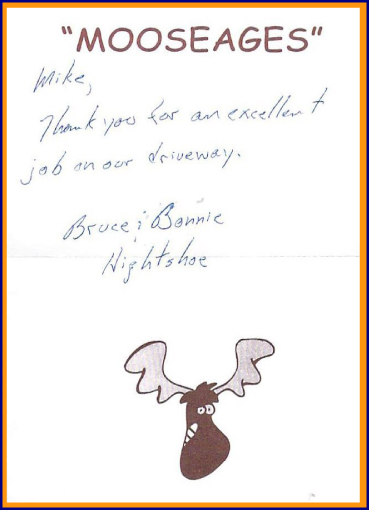 "MOOSEAGES"
Mike,
Thank you for an excellent
job on our driveway.
Bruce & Bonnie
Hightshoe